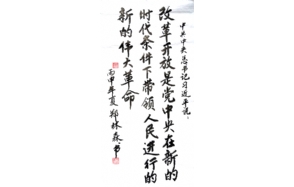 中共中央总书记习近平说：
改革开放是党中央在新的
时代条件下带领人民进行的
新的伟大革命
丙申年夏郑林森书